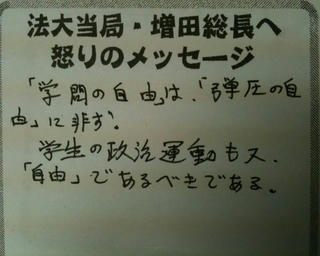 法大当局・増田総長へ
怒りのメッセージ
「学問の自由」は、「弾圧の自
由」に非ず。
学生の政治運動も又、
「自由」であるべきである。